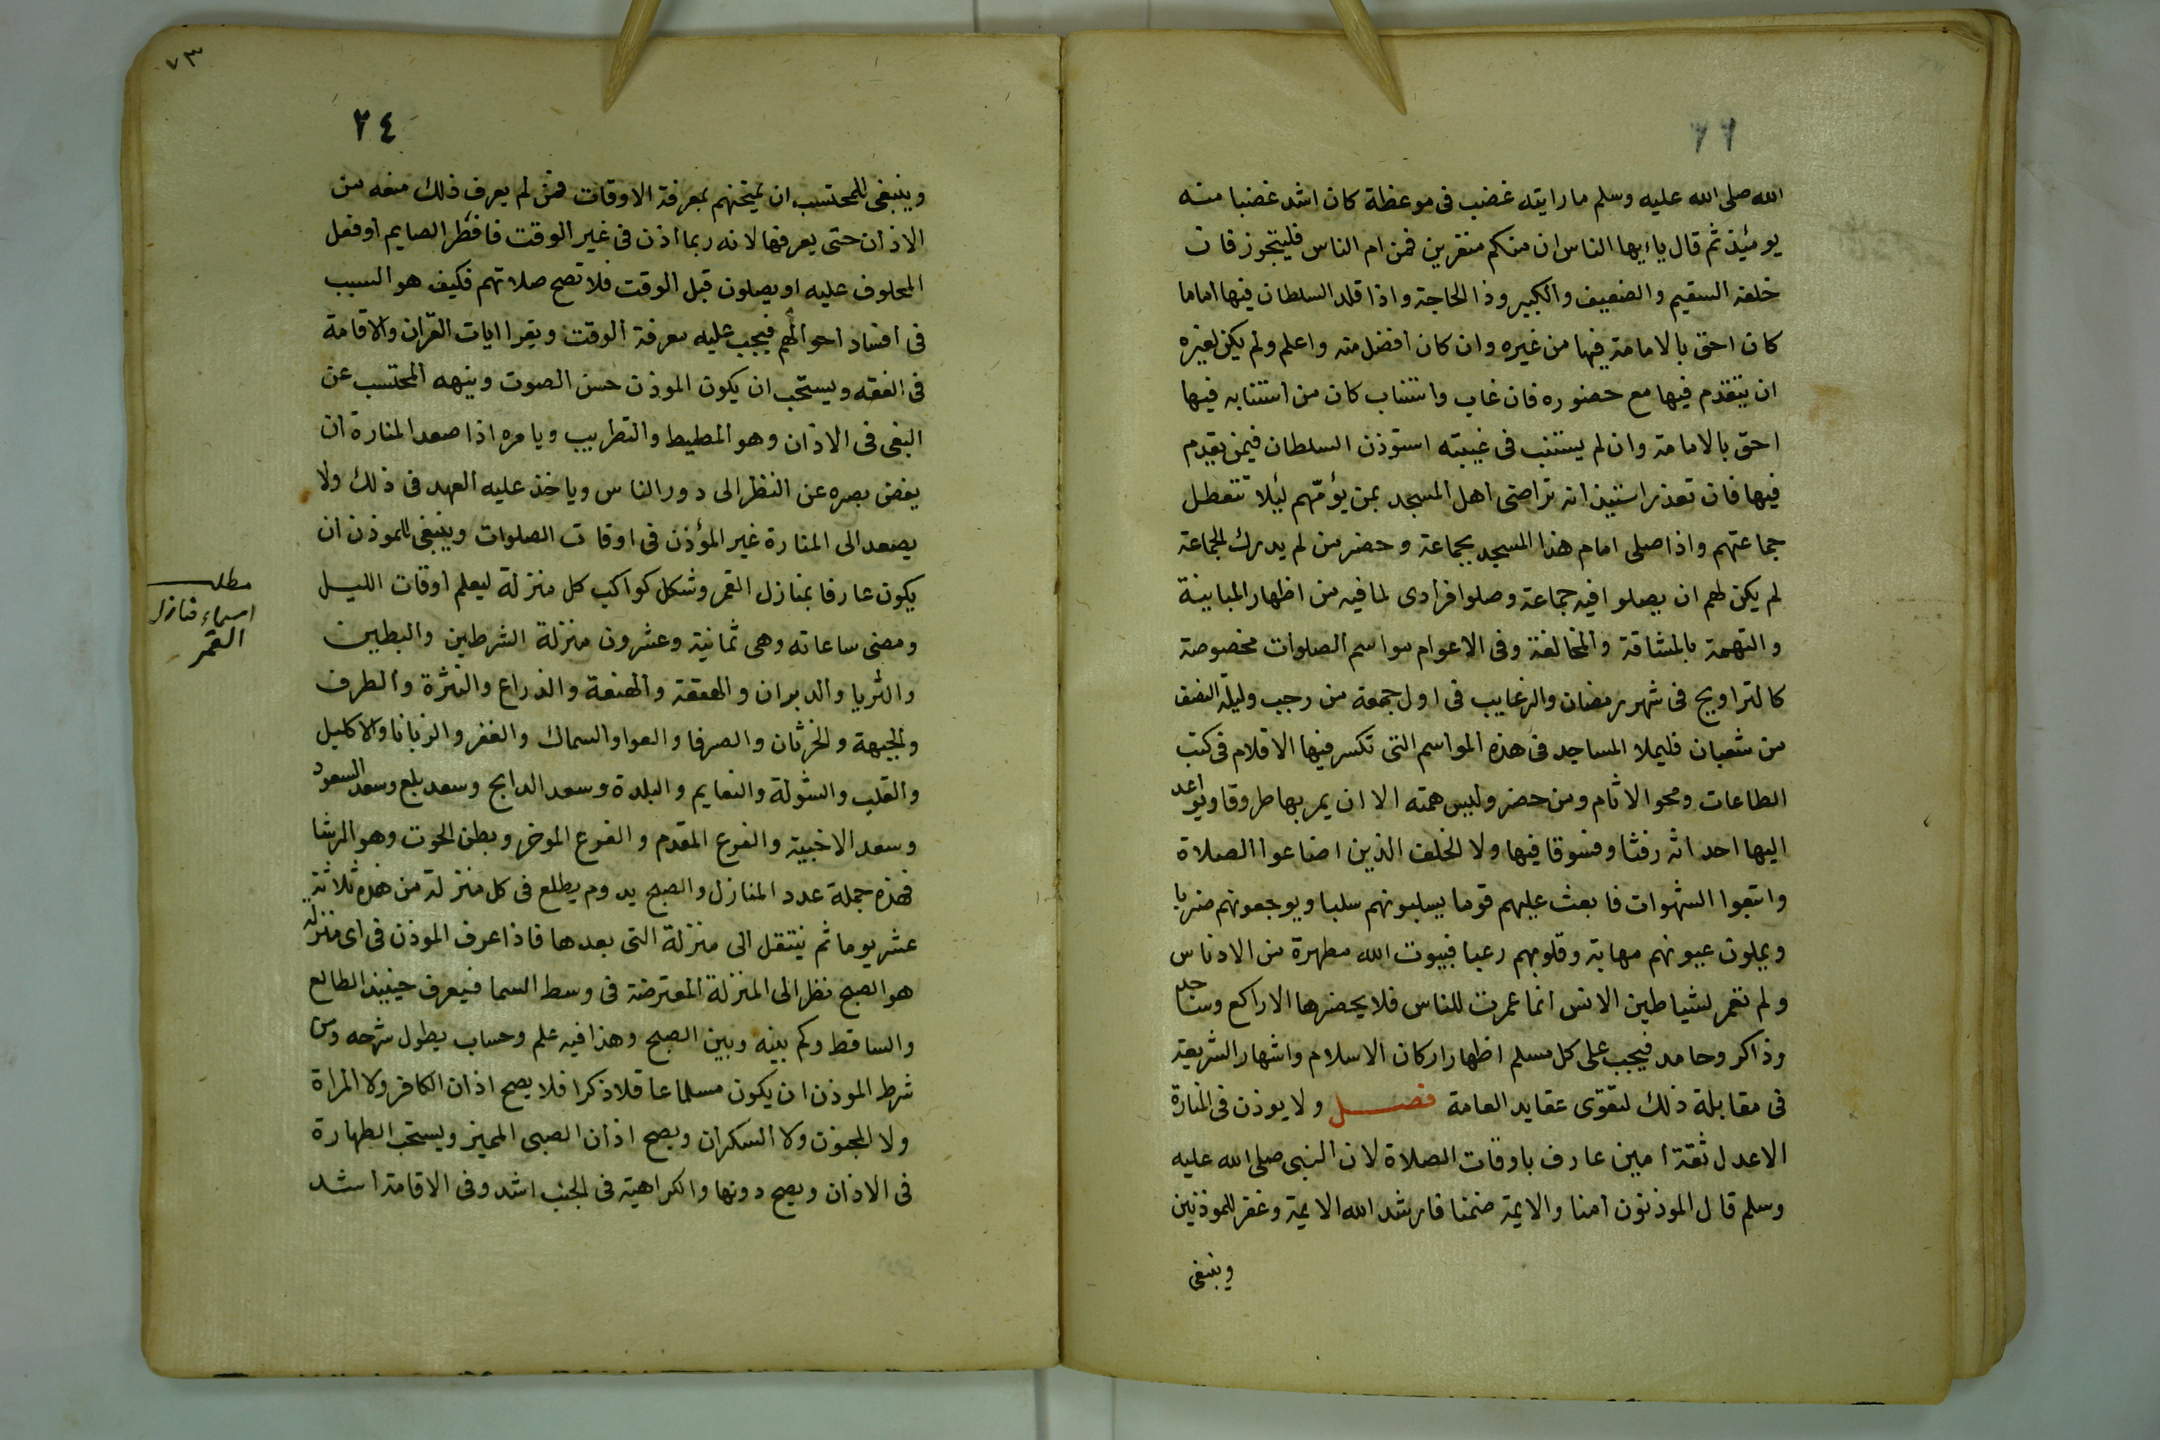 ٦٦
الله صلى الله عليه وسلم ما رايته غضب فى موعظة كان اشد غضبا منه
يومئيذ ثم قال يا ايها الناس ان منكم منفرين فمن ام الناس فليتجوز فان
خلفه السقيم والضعيف والكبير وذا الحاجة واذا قلد السلطان فيها اماما
كان احق بالامامة فيها من غيره وان كان افضل منه واعلم ولم يكن لغيره
ان يتقدم فيها مع حضوره فان غاب واستناب كان من استنابه فيها
احق بالامامة وان لم يستنب فى غيبته استوذن السلطان فيمن يقدم
فيها فان تعذر استيذانه تراضى اهل المسجد بمن يؤمهم ليلا تتعطل
جماعتهم واذا صلى امام هذا المسجد بجماعة وحضر من لم يدرك الجماعة
لم يكن لهم ان يصلوا فيه جماعة وصلوا فرادى لما فيه من اظهار المباينة
والتهمة بالمشاقة والمخالفة وفى الاعوام مواسم الصلوات مخصوصة
كالتراويح فى شهر رمضان والرغايب فى اول جمعة من رجب وليلة النصف
من شعبان فليملا المساجد فى هذه المواسم التى تكسر فيها الاقلام فى كتب
الطاعات ومحو الاثام ومن حضر وليس همته الا ان يمر بها طروقا ويواعد
اليها احداثه رفثا وفسوقا فيها ولا الخلف الذين اضاعوا الصلاة
واتبعوا الشهوات فابعث عليهم قوما يسلبونهم سلبا ويوجعونهم ضربا
ويملون عيونهم مهابة وقلوبهم رعبا فبيوت الله مطهرة من الادناس
ولم تعمر لشياطين الانس انما عمرت للناس فلا يحضرها الا راكع وساجد
وذاكر وحامد فيجب على كل مسلم اظهار اركان الاسلام واشهار الشريعة
فى مقابلة ذلك لتقوى عقايد العامة فصل ولا يوذن فى المنارة
الا عدل ثقة امين عارف باوقات الصلاة لان النبى صلى الله عليه
وسلم قال الموذنون امنا والايمة ضمنا فارشد الله الايمة وغفر للموذنين
وينبغى
٧٣
٢٤
وينبغى للمحتسب ان يمتحنهم بمعرفة الاوقات فمن لم يعرف ذلك منعه من
الاذان حتى يعرفها لانه ربما اذن فى غير الوقت فافطر الصايم او فعل
المحلوف عليه او يصلون قبل الوقت فلا تصح صلاتهم فكيف هو السبب
فى افساد احوالهم فيجب عليه معرفة الوقت ويقرا ايات القران والاقامة
فى الفقه ويستحب ان يكون الموذن حسن الصوت وينهه المحتسب عن
البغى فى الاذان وهو المطيط والتطريب ويامره اذا صعد المنارة ان
يغض بصره عن النظر الى دور الناس وياخذ عليه العهد فى ذلك ولا
يصعد الى المنارة غير المؤذن فى اوقات الصلوات وينبغى للموذن ان
يكون عارفا بمنازل القمر وشكل كواكب كل منزلة ليعلم اوقات الليل
ومضى ساعاته وهى ثمانية وعشرون منزلة الشرطين والبطين
والثريا والدبران والهقعة والهنعة والذراع والنثرة والطرف
والجبهة والخرثان والصرفا والعوا والسماك والغفر والزبانا والاكليل
والقلب والشولة والنعايم والبلدة وسعد الدابح وسعد بلع وسعد السعود
وسعد الاخبية والفرع المقدم والفرع الموخر وبطن الحوت وهو الرشا
فهذه جملة عدد المنازل والصبح يدوم يطلع فى كل منزلة من هذه ثلاثة
عشر يوما ثم ينتقل الى منزلة التى بعدها فاذا عرف الموذن فى اى منزلة
هو الصبح نظر الى المنزلة المعترضة فى وسط السما فيعرف حينيذ الطالع
والساقط وكم بينه وبين الصبح وهذا فيه علم وحساب يطول شرحه ومن
شرط الموذن ان يكون مسلما عاقلا ذكرا فلا يصح اذان الكافر ولا المراة
ولا المجنون ولا السكران ويصح اذان الصبى المميز ويستحب الطهارة
فى الاذان ويصح دونها والكراهية فى الجنب اشد وفى الاقامة اشد
مطلب
اسماء منازل
القمر